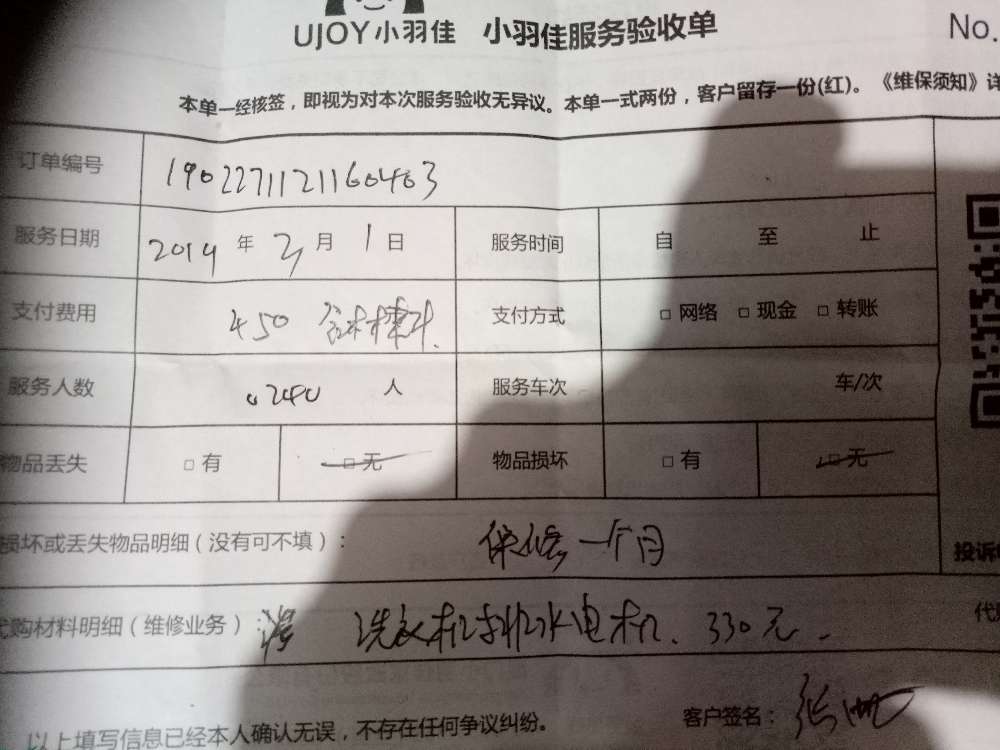 UJOY小羽佳 小羽佳服务验收单 No.
本单一经核签，即视为对本次服务验收无异议。本单一式两份，客户留存一份(红)。《维保须知》详
订单编号 1902271121160403
服务日期 2019 年 3 月 1 日 服务时间 自 至 止
支付费用 450 含材料 支付方式 □ 网络 □ 现金 □ 转账
服务人数 0240 人 服务车次 车/次
物品丢失 □ 有 □ 无 物品损坏 □ 有 □ 无
损坏或丢失物品明细（没有可不填）： 保修一个月
投诉
代购材料明细（维修业务）： 洗衣机排水电机. 330元. 代
以上填写信息已经本人确认无误，不存在任何争议纠纷。 客户签名：